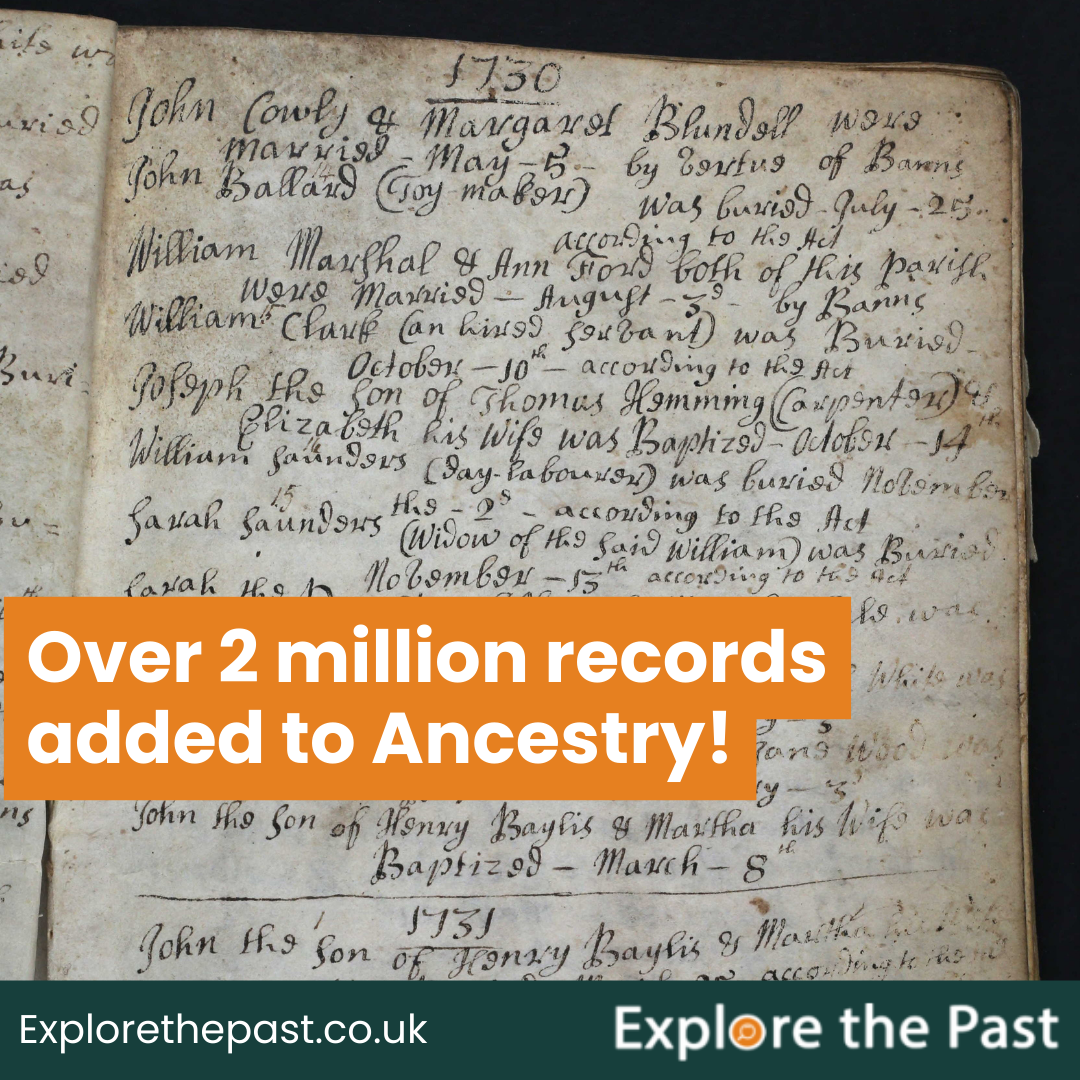 1730
John Cowly & Margaret Blundell were
Married - May - 5 - by Vertue of Banns
John Ballard (Toy-maker) was buried - July - 25 -
according to the Act
William Marshal & Ann Ford both of this Parish
were Married - August - 3d - by Banns
William Clark (an hired servant) was Buried -
October - 10th - according to the Act
Joseph the son of Thomas Hemming (Carpenter) &
Elizabeth his Wife was Baptized - October - 14th
William Saunders (day-labourer) was buried November
the - 2d - according to the Act
15
Sarah Saunders (Widow of the said William) was Buried
November - 15th according to the Act
Sarah the
was
White was
Wood was
John the son of Henry Baylis & Martha his Wife was
Baptized - March - 8th
1731
John the son of Henry Baylis & Martha his Wife
according to the
Over 2 million records
added to Ancestry!
Explorethepast.co.uk
Explore the Past